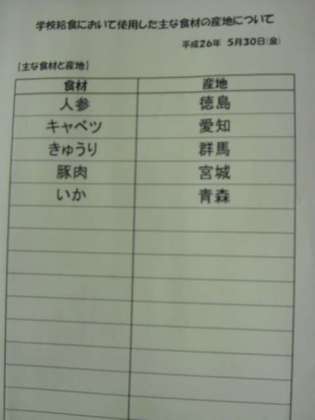 学校給食において使用した主な食材の産地について
平成26年 5月30日(金)
[主な食材と産地]
食材 産地
人参 徳島
キャベツ 愛知
きゅうり 群馬
豚肉 宮城
いか 青森